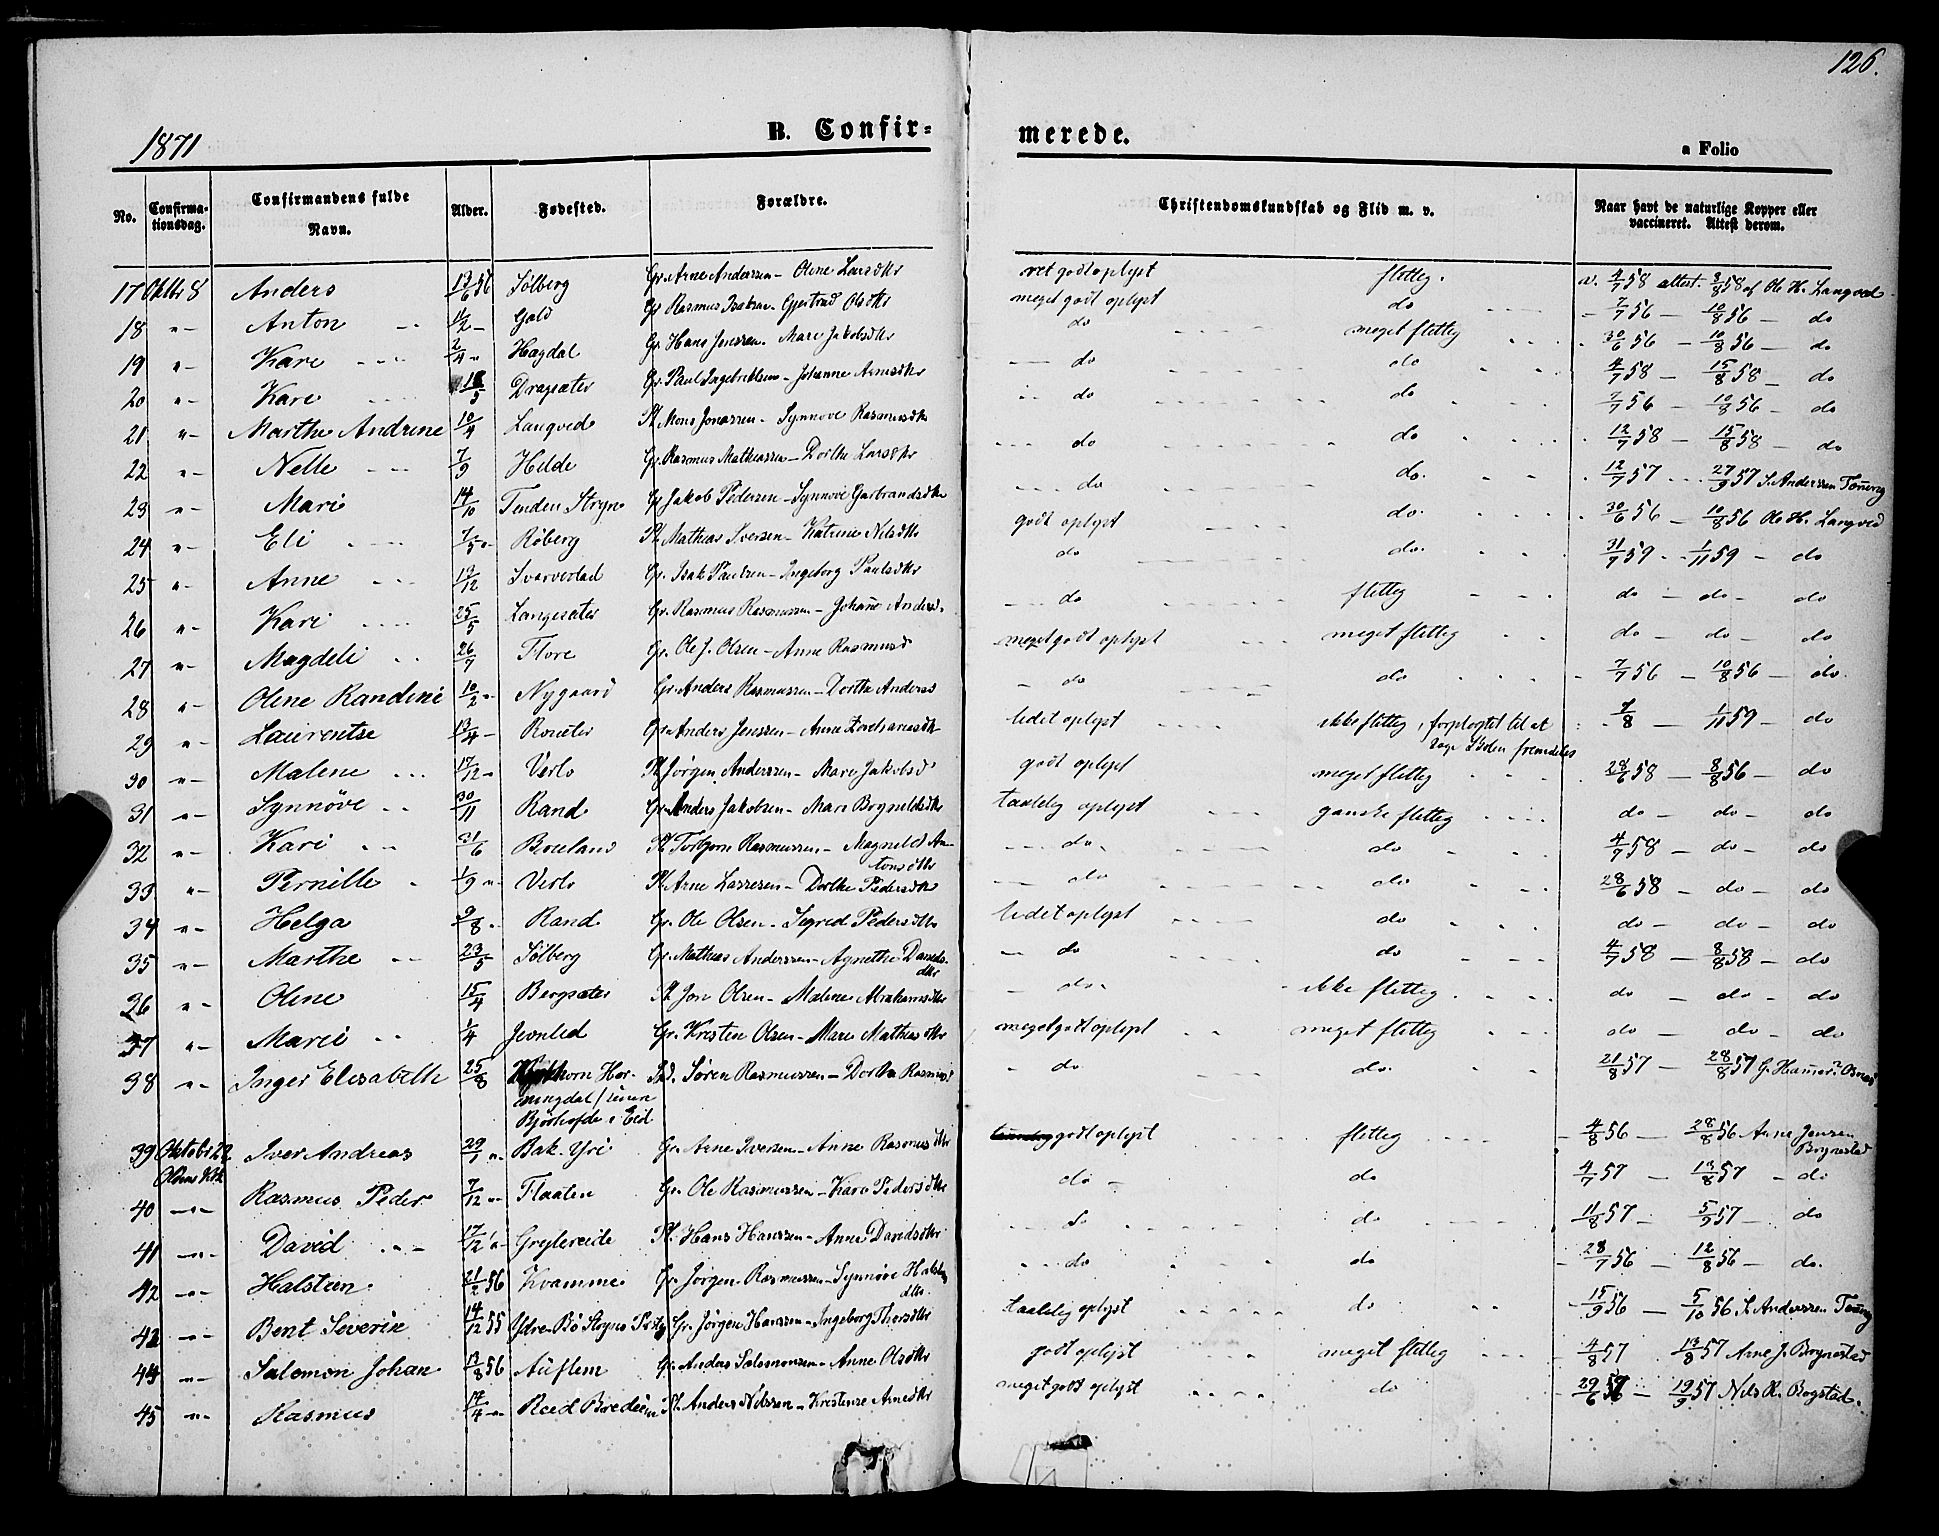 126.
1871
B. Confir= merede.
a Folio
No. Confirma-tionsdag. Confirmandens fulde Navn. Alder. Fødested. Forældre. Christendomskundskab og Flid m. v. Naar havt de naturlige Kopper eller vaccineret. Attest derom.
17 Oktbr 8 Anders 13/6 56 Sølberg Gr. Arne Anderssen - Oline Larsdtr ret godt oplyst flittig. v. 4/7 58 attest. 8/8 58 af Ole H. Langved
18 " - Anton 11/2 - Gald Gr. Rasmus Isaksen - Gjertrud Olsdtr meget godt oplyst do - 7/7 56 - 10/8 56 - do
19 " - Kari 2/4 " Hagdal Gr. Hans Jenssen - Mari Jakobsdtr do meget flittig 30/6 56 - 10/8 56 - do
20 " - Kari 18/5 Dragsæter Gr. Paul Ingebrigtsen - Johanne Arnesdtr do do 4/7 58 - 15/8 58 - do
21 " - Marthe Andrine 10/4 Langved Pl. Mons Jonassen - Synnøve Rasmusdtr do do 7/7 56 - 10/8 56 - do
22 " - Nelle 7/9 Hilde Gr. Rasmus Mathiassen - Dorthe Larsdtr do do 12/7 58 - 15/8 58 - do
23 " - Mari 14/10 Tenden Stryn Gr. Jakob Pedersen - Synnøve Garbrandsdtr do do. 12/7 57 - 27/9 57 S. Anderssen Toning
24 " - Eli 7/5 " Røberg Pl. Mathias Iversen - Katrine Nilsdtr godt oplyst do. 30/6 56 - 10/8 56 Ole H. Langved
25 " - Anne 19/12 Svarvestad Gr. Isak Paulsen - Ingeborg Paulsdtr do do. 31/7 59 - 1/11 59 - do
26 " - Kari 25/5 Langesæter Gr. Rasmus Rasmussen - Johane Andersd. do flittig do - do - do
27 " - Magdeli 26/7 Flore Gr. Ole J. Olsen - Anne Rasmusd meget godt oplyst meget flittig do - do - do
28 " - Oline Randine 10/2 " Nygaard Gr. Anders Rasmussen - Dorthe Andersd do do 7/7 56 - 10/8 56 - do.
29 " - Laurentse 13/4 - Ronæter Gr. Anders Jenssen - Anne Zachariasdtr lidet oplyst ikke flittig, forpligtet til at søge Skolen fremdeles 7/8 - 1/11 59 - do
30 " - Malene 17/12 " Verlo Pl. Jørgen Anderssen - Mari Jakobsd godt oplyst meget flittig 28/6 58 - 8/8 56 - do
31 " - Synnøve 30/11 Rand Gr. Anders Jakobsen - Mari Bryneldsdtr taalelig oplyst ganske flittig do - do - do
32 " - Kari 21/6 Brueland Pl. Torbjørn Rasmussen - Magnild Antonsdtr do. do 4/7 58 - do - do
33 " - Pernille 1/9 " Verlo Pl. Arne Lassesen - Dorthe Pedersdtr do do 28/6 58 - do - do
34 " - Helga 9/8 " Rand Gr. Ole Olsen - Sigrid Pedersdtr lidet oplyst do do - do - do
35 " - Marthe 23/5 Sølberg Gr. Mathias Anderssen - Agnethe Danielsdtr do do 4/7 58 - 8/8 58 - do
36 " - Oline 15/4 Bergsæter Pl. Jon Olsen - Malene Abrahamsdtr do. ikke flittig do - do - do
37 " - Mari 1/4 Jevnlid Gr. Kristen Olsen - Mari Mathiasdtr meget godt oplyst meget flittig do - do - do
38 " - Inger Elisabeth 25/8 Horningdal / senere Bjørlofde i Eid Søren Rasmussen - Dorthe Rasmusd do do. 21/8 57 - 28/8 57
39 Oktobr 22 Iver Andreas 29/1 " Bak-Yri Gr. Arne Iversen - Anne Rasmusdtr godt oplyst flittig 4/8 56 - 28/8 56 Arne Jensen Brynestad
40 - " - Rasmus Peder 7/12 " Flaaten Gr. Ole Rasmussen - Kari Pedersdtr do do 4/7 57 - 13/8 57 - do
41 - " - David 17/12 " Grytereide Pl. Hans Hanssen - Anne Davidsdtr do do 11/8 57 - 5/9 57 - do
42 - " - Halsten 21/2 56 Kvamme Gr. Jørgen Rasmussen - Synnøve Halstensdtr. do do 28/7 56 - 12/8 56 - do.
43 - " - Bent Severin 14/12 55 Ytre-Bø Stryns Prstg Gr. Jørgen Hanssen - Ingeborg Thorsdtr taalelig oplyst do 15/9 56 - 5/10 56 S. Anderssen Toning
44 - " - Salomon Johan 13/8 56 Auflem Gr. Anders Salomonsen - Anne Olsdtr godt oplyst meget flittig 4/8 57 13/8 57 Arne J. Brynestad
45 " - Rasmus 14/4 - " - Reed Bredeim Pl. Anders Nilssen - Kristense Arnesdtr meget godt oplyst do 29/6 57 - 19/9 57 Nils R. Bogstad.